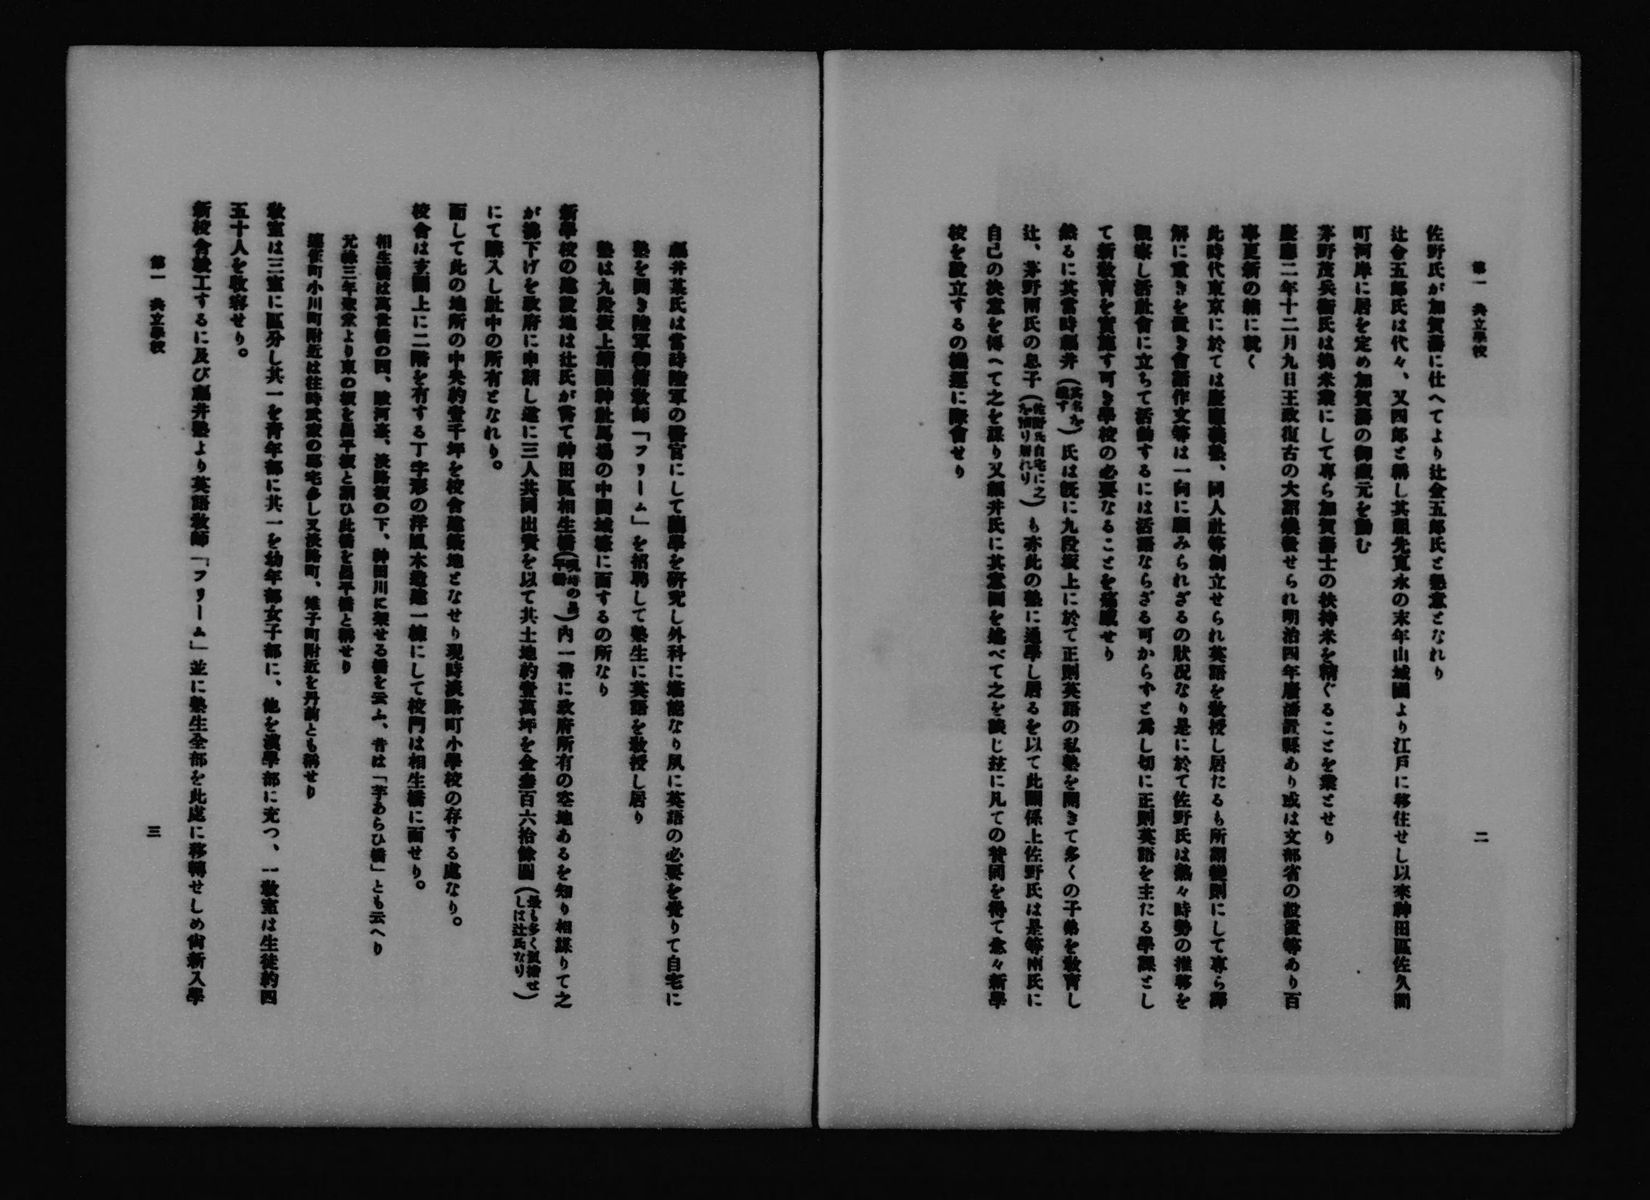 第一 共立學校
二
佐野氏が加賀藩に仕へてより辻金五郎氏と懇意となれり
辻金五郎氏は代々、又四郎と稱し其祖先寛永の末年山城國より江戸に移住せし以來神田區佐久間
町河岸に居を定め加賀藩の御藏元を勤む
茅野茂兵衞氏は搗米業にして專ら加賀藩士の扶持米を精ぐることを業とせり
慶應三年十二月九日王政復古の大詔煥發せられ明治四年廢藩置縣あり或は文部省の設置等あり百
事更新の緒に就く
此時代東京に於ては慶應義塾、同人社等創立せられ英語を教授し居たるも所謂變則にして專ら譯
解に重きを置き會話作文等は一向に顧みられざるの狀況なり是に於て佐野氏は熟々時勢の推移を
觀察し活社會に立ちて活動するには活語ならざる可からずと爲し切に正則英語を主たる學課とし
て新教育を實施す可き學校の必要なることを痛感せり
然るに其當時深井(其名を逸す)氏は既に九段坂上に於て正則英語の私塾を開きて多くの子弟を教育し
辻、茅野兩氏の息子(佐野氏自宅に之を預り居れり)も亦此の塾に通學し居るを以て此關係上佐野氏は是等兩氏に
自己の決意を傳へて之を謀り又深井氏に其意圖を述べて之を談じ茲に凡ての贊同を得て愈々新學
校を設立するの機運に際會せり
深井某氏は當時陸軍の醫官にして蘭學を硏究し外科に堪能なり夙に英語の必要を覺りて自宅に
塾を開き陸軍御雇教師「フリーム」を招聘して塾生に英語を教授し居り
塾は九段坂上靖國神社馬場の中國城壕に面するの所なり
新學校の建設地は辻氏が嘗て神田區相生橋(現時の昌平橋)內一帶に政府所有の空地あるを知り相謀りて之
が拂下げを政府に申請し遂に三人共同出資を以て其土地約壹萬坪を金參百六拾餘圓(最も多く醵出せしは辻氏なり)
にて購入し社中の所有となれり。
而して此の地所の中央約壹千坪を校舍建築地となせり現時淡路町小學校の存する處なり。
校舍は玄關上に二階を有する丁字形の洋風木造建一棟にして校門は相生橋に面せり。
相生橋は萬世橋の西、駿河臺、淡路坂の下、神田川に架せる橋を云ふ、昔は「芋あらひ橋」とも云へり
元祿三年聖堂より東の坂を昌平坂と謂ひ此橋を昌平橋と稱せり
連雀町小川町附近は往時武家の邸宅多し又淡路町、雉子町附近を丹前とも稱せり
教室は三室に區分し其一を靑年部に其一を幼年部女子部に、他を漢學部に充つ、一教室は生徒約四
五十人を收容せり。
新校舍竣工するに及び深井塾より英語教師「フリーム」並に塾生全部を此處に移轉せしめ尙新入學
第一 共立學校
三